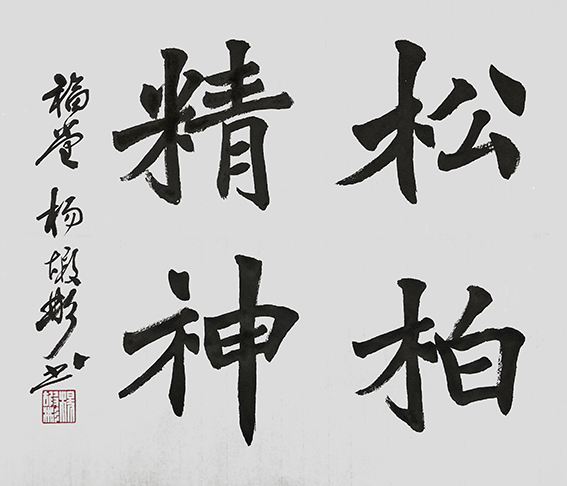 松柏
精神
福堂 杨嘏彬书